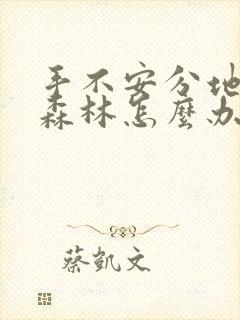 手不安分地
森林怎麼办
蔡凱文